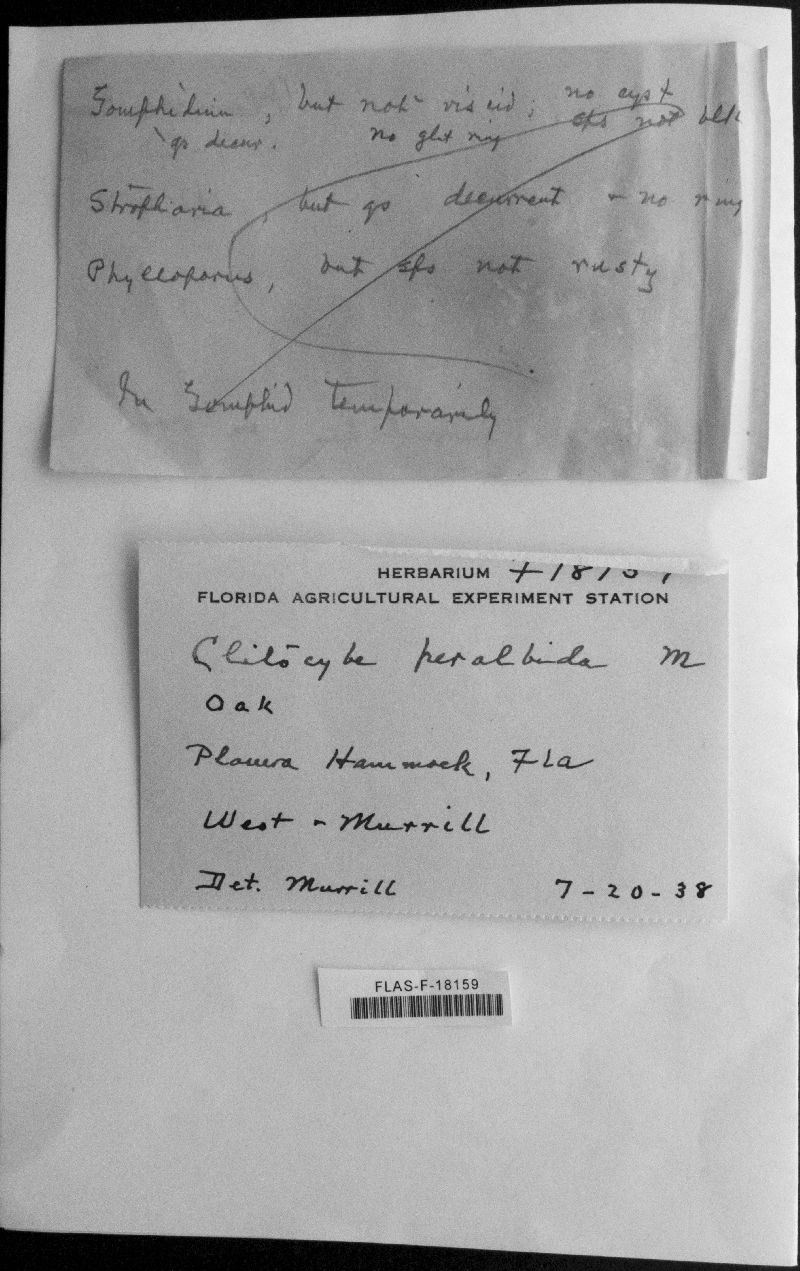 Gomphidium, but not viscid; no cyst
gs decur. no glut ring sps not blk
Stropharia, but gs decurrent & no ring
Phylloporus, but sps not rusty
In Gomphid temporarily
HERBARIUM F18159
FLORIDA AGRICULTURAL EXPERIMENT STATION
Clitocybe peralbida M
Oak
Planera Hammock, Fla
West & Murrill
Det. Murrill 7-20-38
FLAS-F-18159